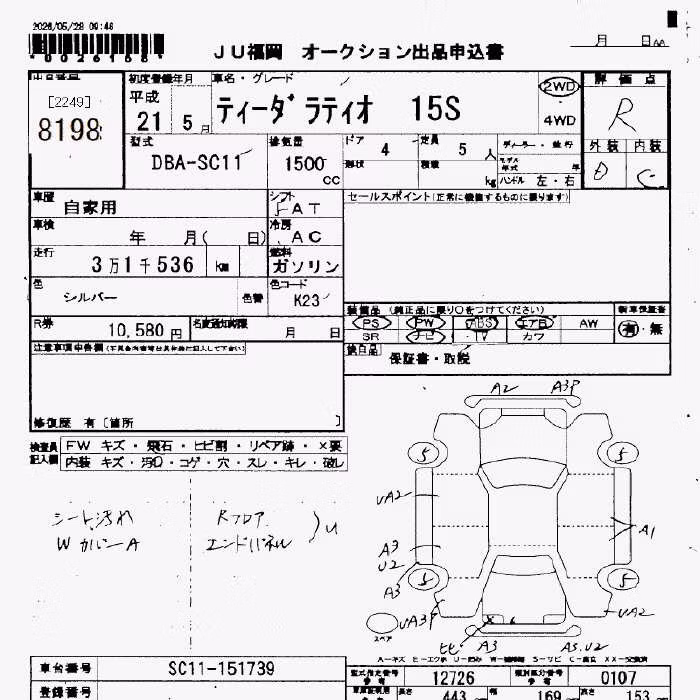 2026/05/28 09:46
*0026158*
JU福岡 オークション出品申込書
月 日
出品番号 初度登録年月 車名・グレード 2WD 評価点
[2249] 平成 ティーダラティオ 15S R
8198 21 5月 4WD
外装 内装
型式 排気量 ドア 4 定員 5人
DBA-SC11 1500cc 形状 積載 kg ハンドル 左・右 D C
車歴 自家用 シフト FAT セールスポイント(正常に機能するものに限ります)
車検 年 月( 日) 冷房 AC
走行 3万1千536 km 燃料 ガソリン
色 シルバー 色替 色コード K23
装備品 (純正品に限り○をつけてください) 新車保証書
R券 10,580円 名変通知期限 月 日 PS PW ABS エアB AW 有・無
SR ナビ TV カワ
注意事項申告欄 後日品 保証書・取説
修復歴 有〔箇所 〕
検査員記入欄 FW キズ・飛石・ヒビ割・リペア跡・×要
内装 キズ・汚れ・コゲ・穴・スレ・キレ・破レ
A2 A3P
5 5
UA2 A1
シート汚れ Rフロア U
W カバーA エンドパネル
A3
U2
A3
5 5
UA3P UA2
スペア
ヒビ A3 A3.U2
車台番号 SC11-151739 型式指定番号 12726 類別区分番号 0107
登録番号 長さ 443 幅 169 高さ 153